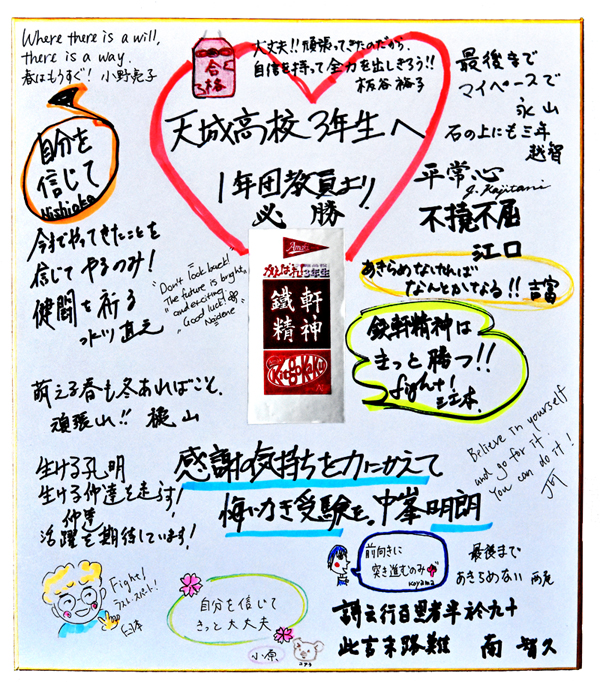 Where there is a will,
there is a way.
春はもうすぐ! 小野亮子
合格
大丈夫!!頑張ってきたのだから、
自信を持って全力を出しきろう!!
板谷裕子
最後まで
マイペースで
永山
石の上にも三年
越智
天城高校3年生へ
1年団教員より!
必勝
自分を
信じて
Nishioka
平常心
J. Kajitani
不撓不屈
江口
今までやってきたことを
信じてやるのみ!
健闘を祈る
"Don't look back!
The future is bright
and exciting"
Good luck!
あきらめなければ
なんとかなる!! 吉富
がんばれ!3年生
鐵軒
精神
Kitgokaku
鉄軒精神は
きっと勝つ!!
fight!
三木
萌える春も冬あればこそ、
頑張れ!! 梶山
Believe in yourself
and go for it!
You can do it!
感謝の気持ちを力にかえて
悔いなき受験を。中峯明朗
生ける孔明
生ける仲達を走らす!
仲達
活躍を期待しています!
前向きに
突き進むのみ
Koyama
最後まで
あきらめない
Fight!
ラストスパート!
自分を信じて
きっと大丈夫
小原
詩云行百里者半於九十
此言末路難 南 智久